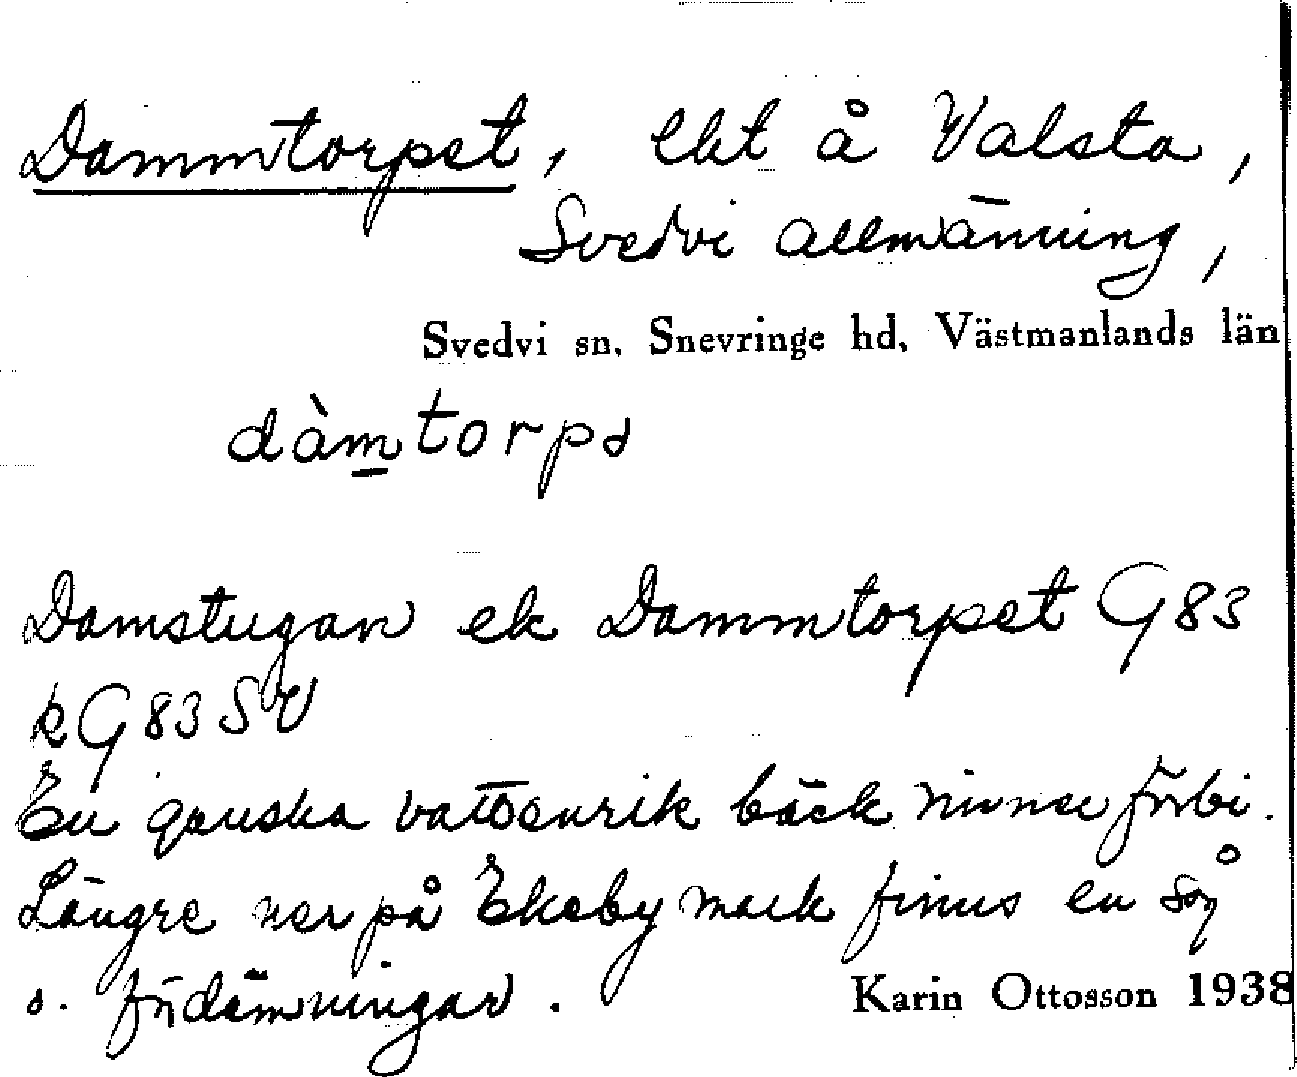 Dammtorpet, lht å Valsta,
Svedvi allmänning,
Svedvi sn, Snevringe hd, Västmanlands län
dàmtorpə
Damstugan ek Dammtorpet G83
k G83 SV
En ganska vattenrik bäck rinner förbi.
Längre ner på Ekeby mark finns en såg
o. fördämningar.
Karin Ottosson 1938